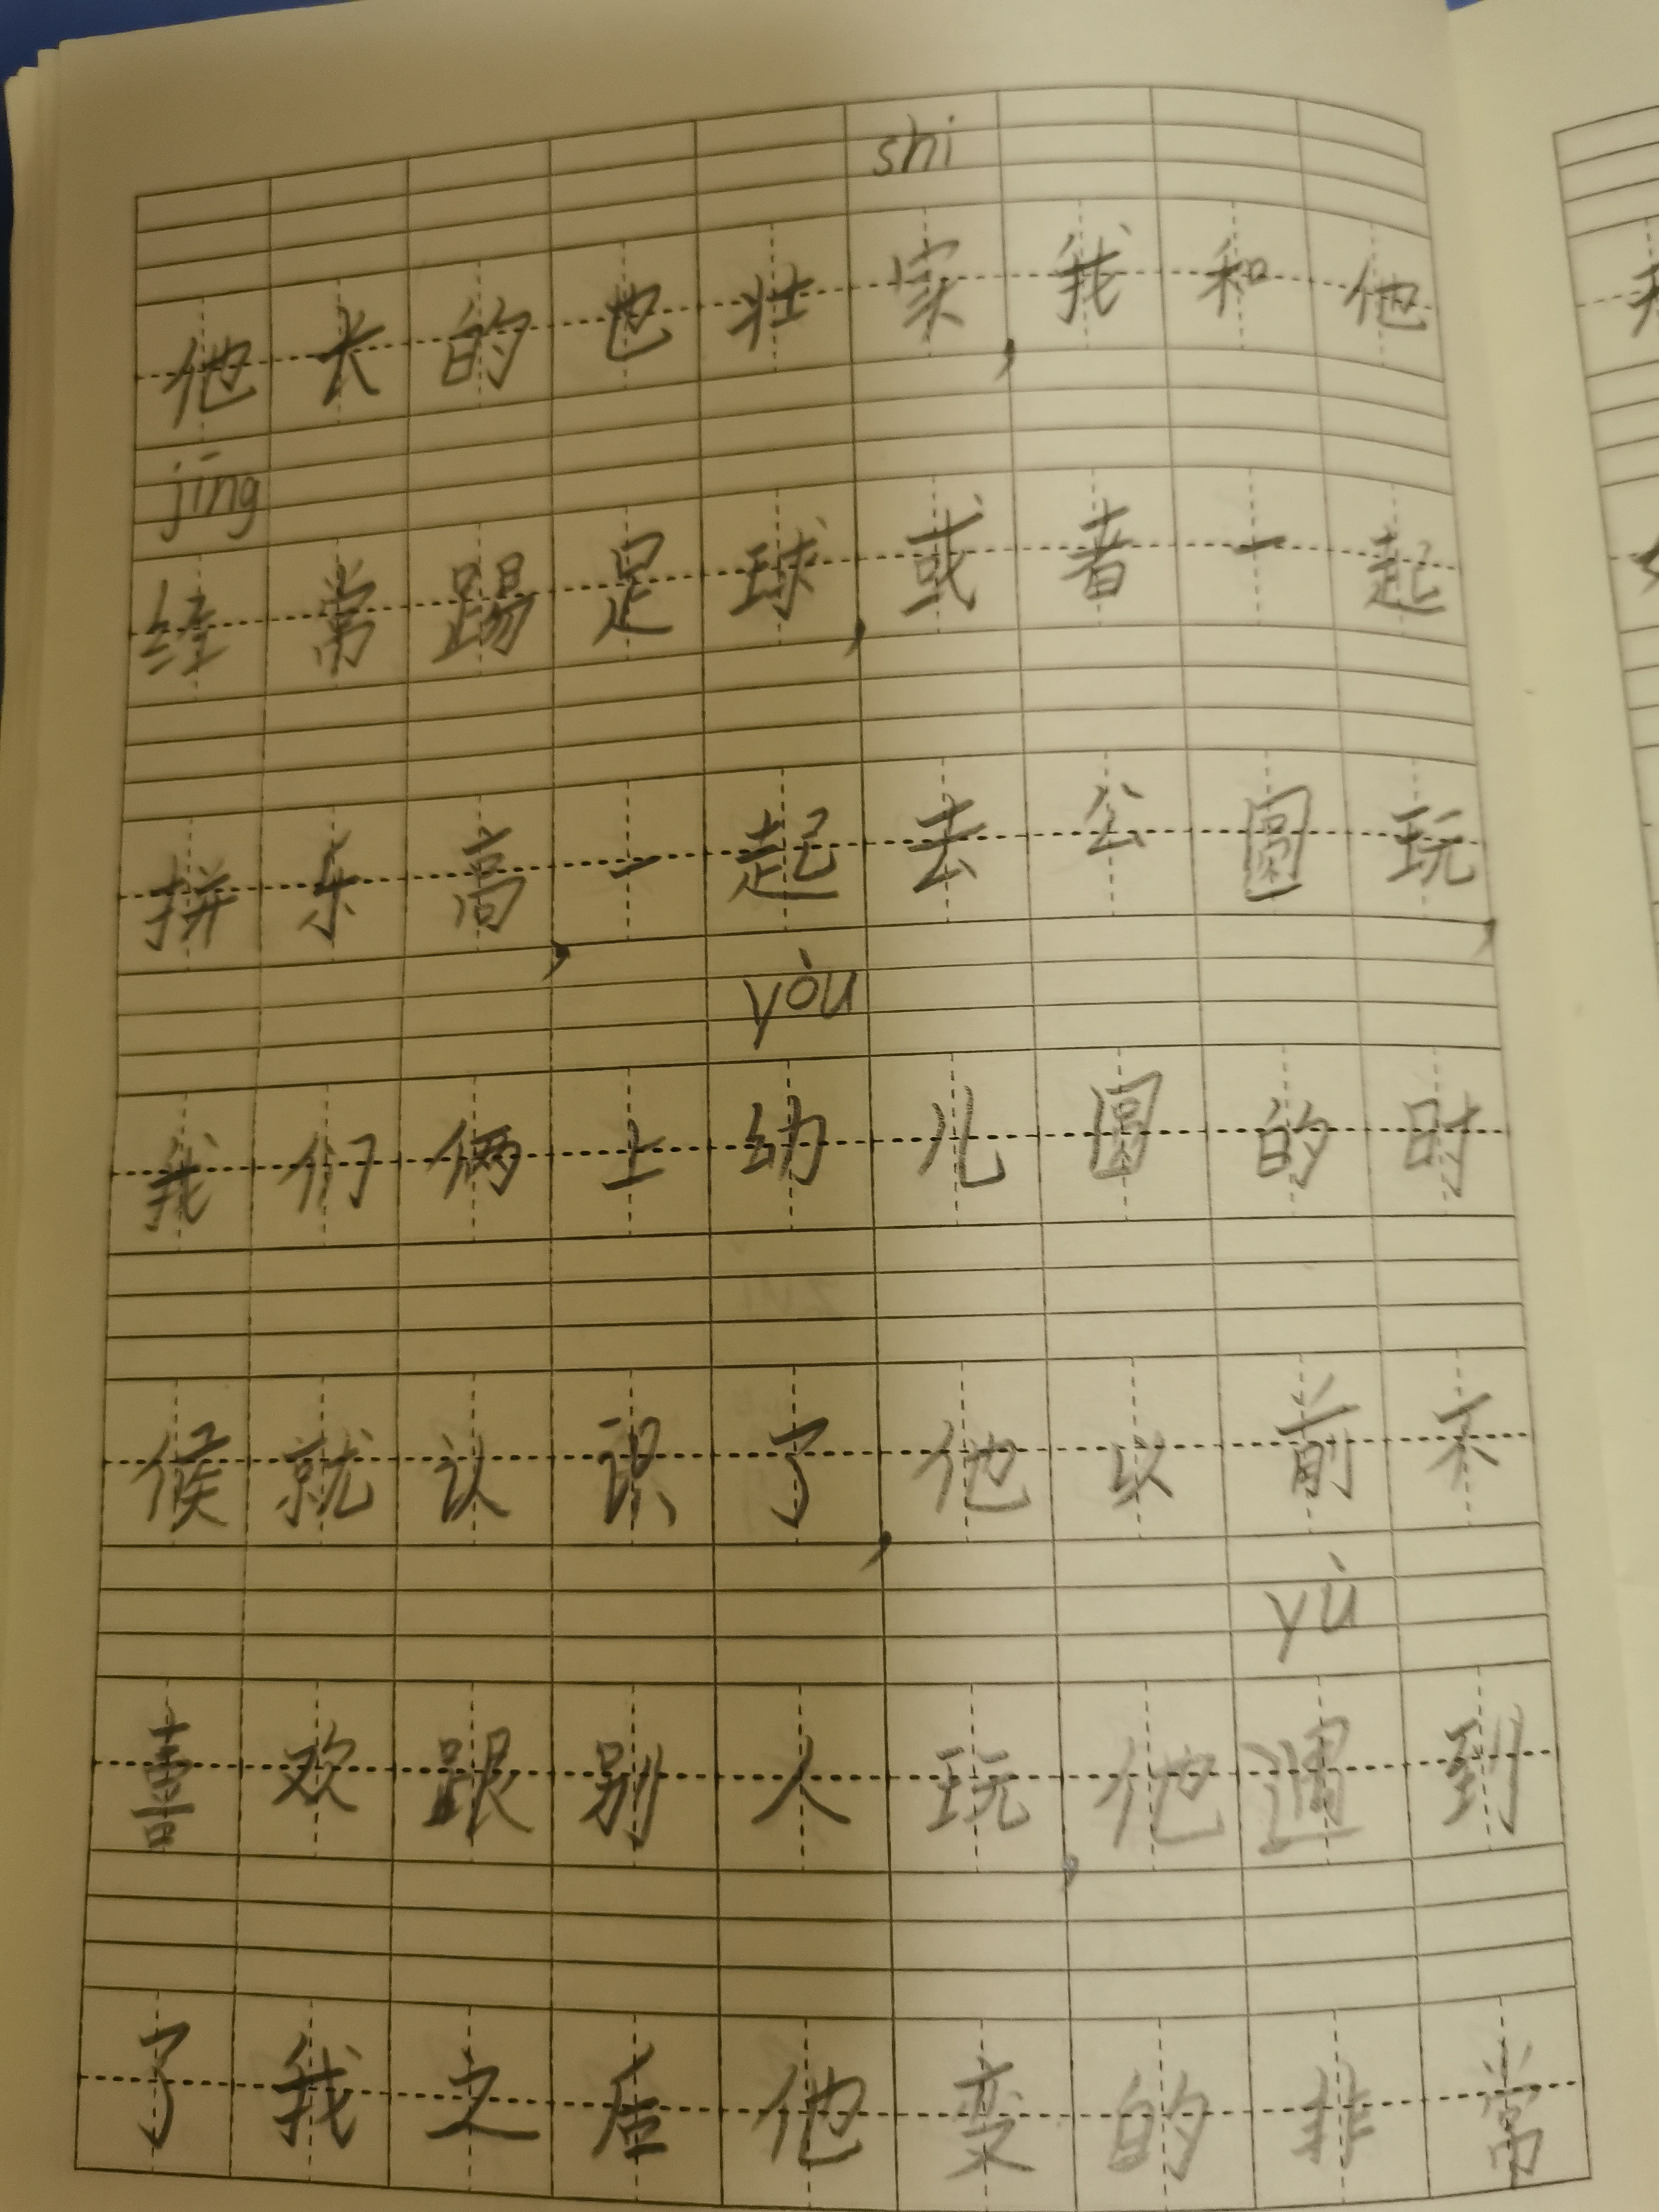 shi
他长的也壮实,我和他
jīng
经常踢足球,或者一起
拼乐高,一起去公圆玩,
yòu
我们俩上幼儿圆的时
候就认识了,他以前不
yù
喜欢跟别人玩,他遇到
了我之后他变的非常